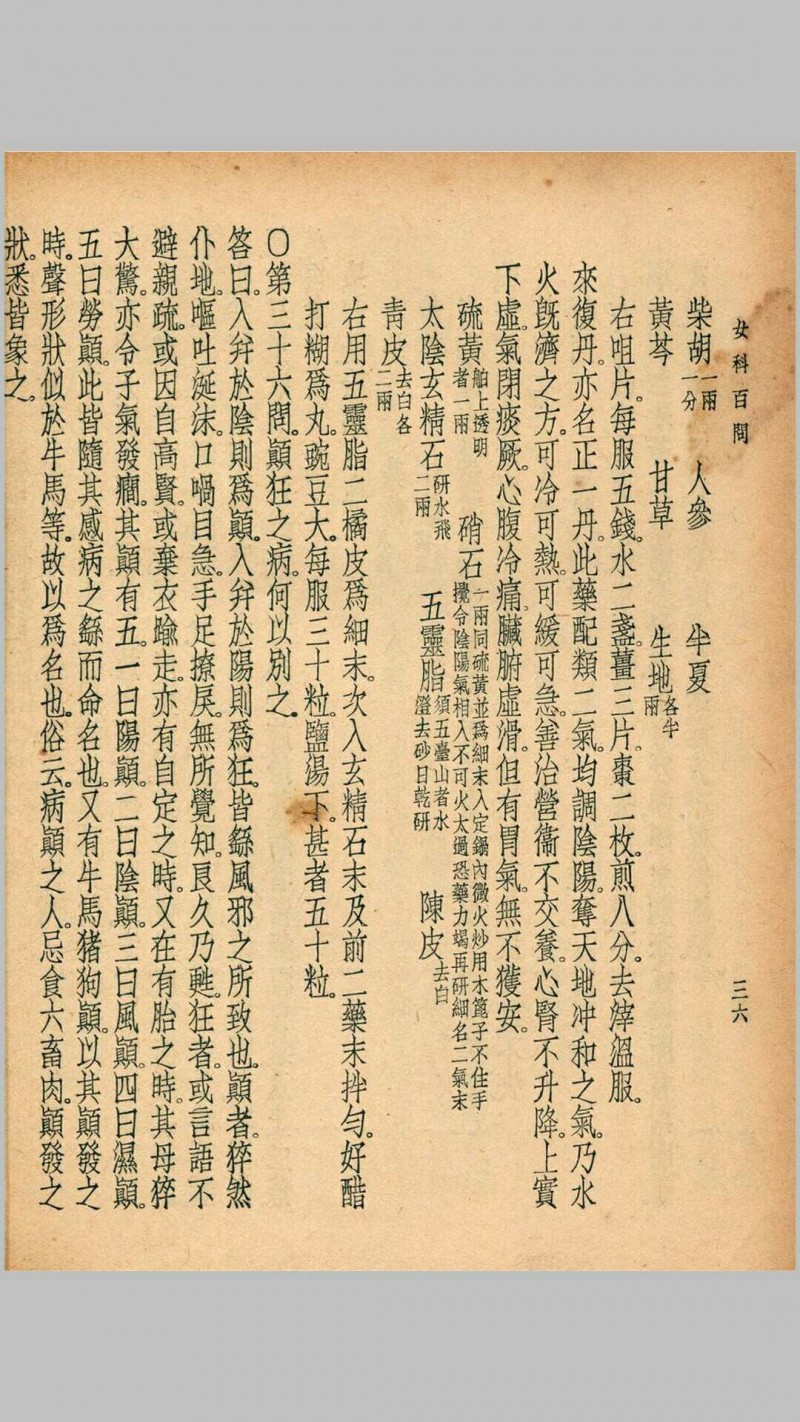 女科百問
三六
柴胡一兩一分　人參　半夏
黃芩　甘草　生地各半兩
右咀片。每服五錢。水二盞。薑三片。棗二枚。煎八分。去滓溫服。
來復丹。亦名正一丹。此藥配類二氣。均調陰陽。奪天地冲和之氣。乃水
火旣濟之方。可冷可熱。可緩可急。善治營衞不交養。心腎不升降。上實
下虛。氣閉痰厥。心腹冷痛。臟腑虛滑。但有胃氣。無不獲安。
硫黃舶上透明者一兩　硝石一兩同硫黃並爲細末入定鍋內微火炒用木篦子不住手攪令陰陽氣相入不可火太過恐藥力竭再研細名二氣末
太陰玄精石研水飛二兩　五靈脂須五臺山者水澄去砂日乾研　陳皮去白
青皮去白各二兩
右用五靈脂二橘皮爲細末。次入玄精石末及前二藥末拌勻。好醋
打糊爲丸。豌豆大。每服三十粒。鹽湯下。甚者五十粒。
〇第三十六問。顚狂之病。何以別之。
答曰。入幷於陰則爲顚。入幷於陽則爲狂。皆繇風邪之所致也。顚者。猝然
仆地。嘔吐涎沫。口喎目急。手足撩戾。無所覺知。良久乃甦。狂者。或言語不
避親疏。或因自高賢。或棄衣踰走。亦有自定之時。又在有胎之時。其母猝
大驚。亦令子氣發癎。其顚有五。一曰陽顚。二曰陰顚。三曰風顚。四曰濕顚。
五曰勞顚。此皆隨其感病之繇而命名也。又有牛馬猪狗顚。以其顚發之
時。聲形狀似於牛馬等。故以爲名也。俗云。病顚之人。忌食六畜肉。顚發之
狀。悉皆象之。